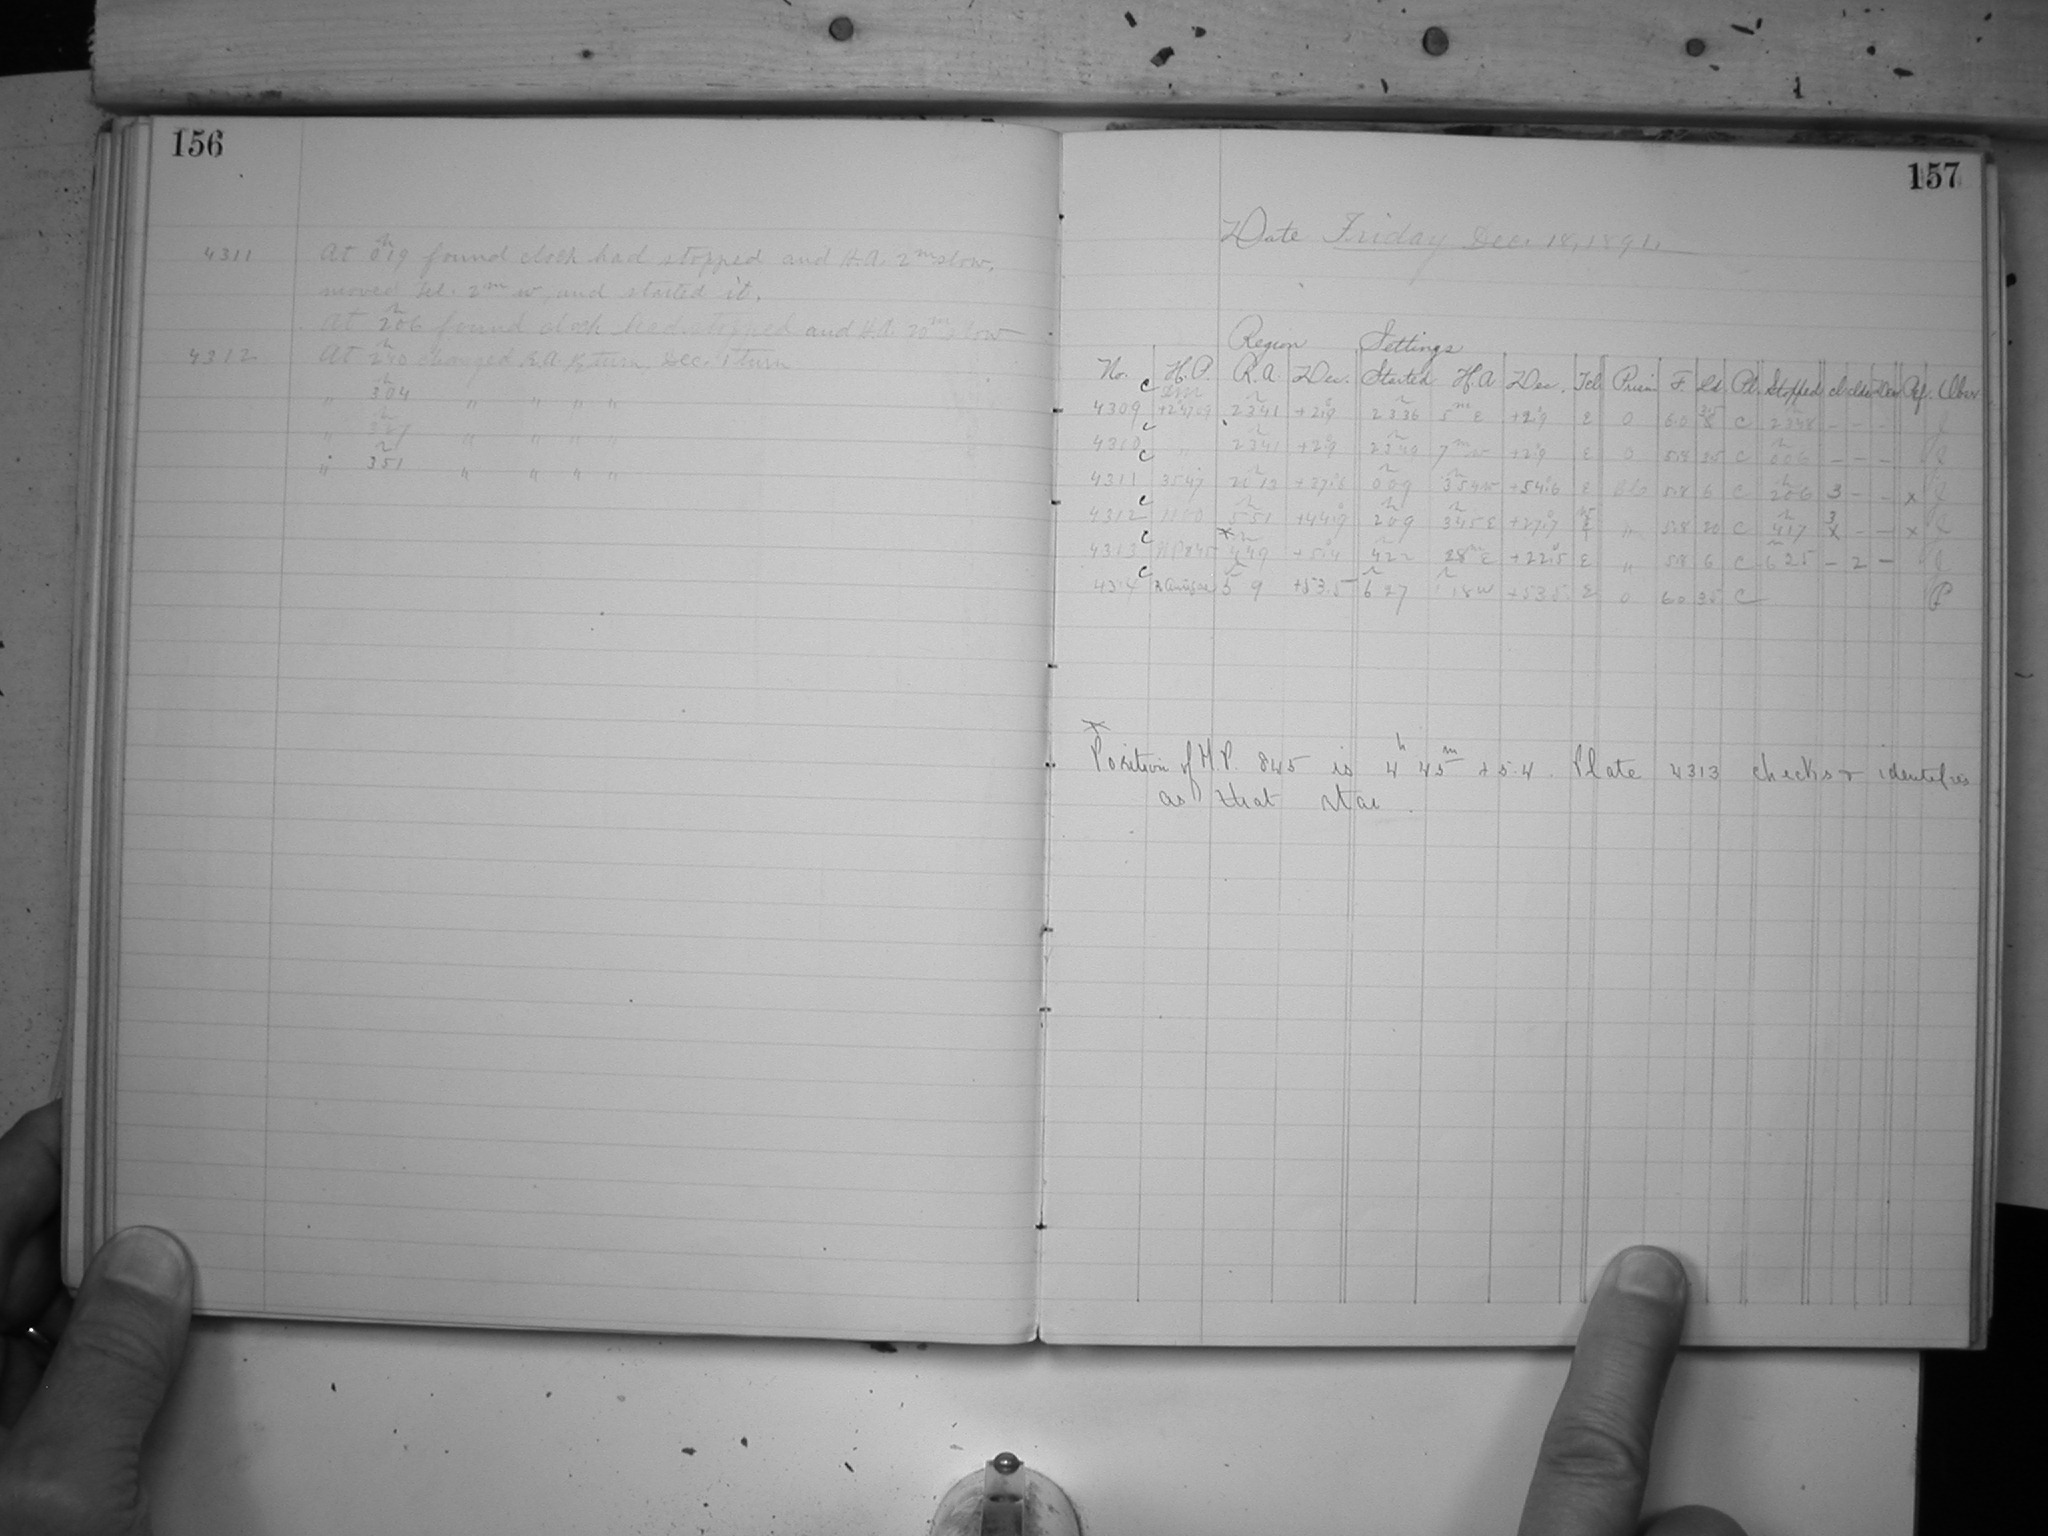 156
4311 At 0h19 found clock had stopped and H.A. 2m slow,
moved tel. 2m w, and started it.
At 2h06 found clock had stopped and H.A. 20m slow
4312 At changed R.A. turn, Dec. 1 turn
" 3h04 " " " "
" " " " "
" 3h51 " " " "
157
Date Friday Dec. 18, 1891.
Region Settings
No. H.P. R.A. Dec. Started H.A. Dec. Tel. Prism F. Pl. Stopped Ref. Obser
4309 c 2341 +2°9 2336 5m E +2°9 E 0 60 C 2348 – – – J
4310 c " 2341 +2°9 2349 7m w +2°9 E 0 58 35 C 006 – – – J
4311 c 3547 2012 +37°6 0h09 3h54 w +54°6 E 58 6 C 2h06 3 – – x J
4312 c 1100 5h51 +44°9 2h09 3h45 E E " 58 20 C 4h17 3 x – – x J
4313 c H.P. 845 * 4h49 +5°4 4h22 28m E +22°5 E " 58 6 C 6h25 – 2 – J
4314 c 5h 9 +53.5 6h 27 1h 18 w +53.5 E 0 60 35 C P
*
Position of H.P. 845 is 4h 45m +5.4. Plate 4313 checks & identifies
as that star.